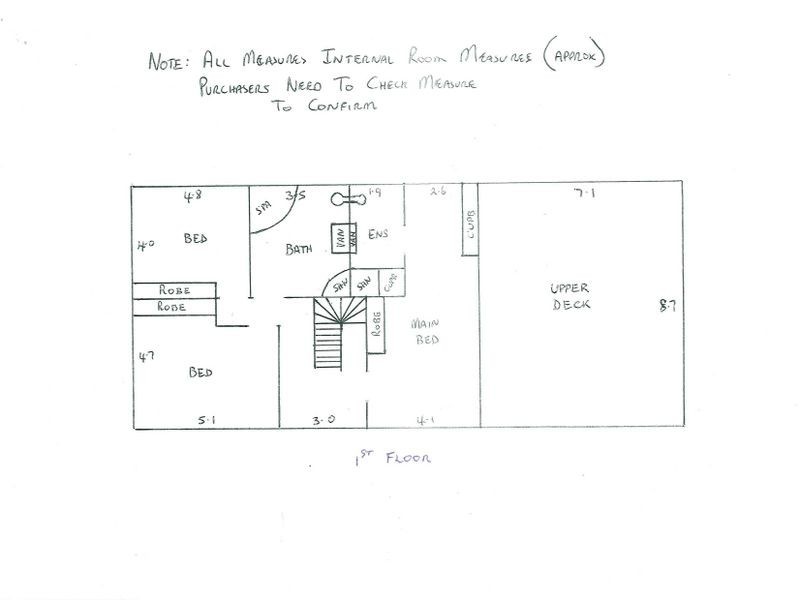 NOTE: ALL MEASURES INTERNAL ROOM MEASURES (APPROX)
PURCHASERS NEED TO CHECK MEASURE
TO CONFIRM
4.8
3.5
1.9
2.6
7.1
SPA
CUPB
4.0
BED
BATH
VAN
VAN
ENS
ROBE
ROBE
SHW
SHW
CUPB
UPPER
DECK
8.7
ROBE
MAIN
BED
4.7
BED
5.1
3.0
4.1
1ST FLOOR